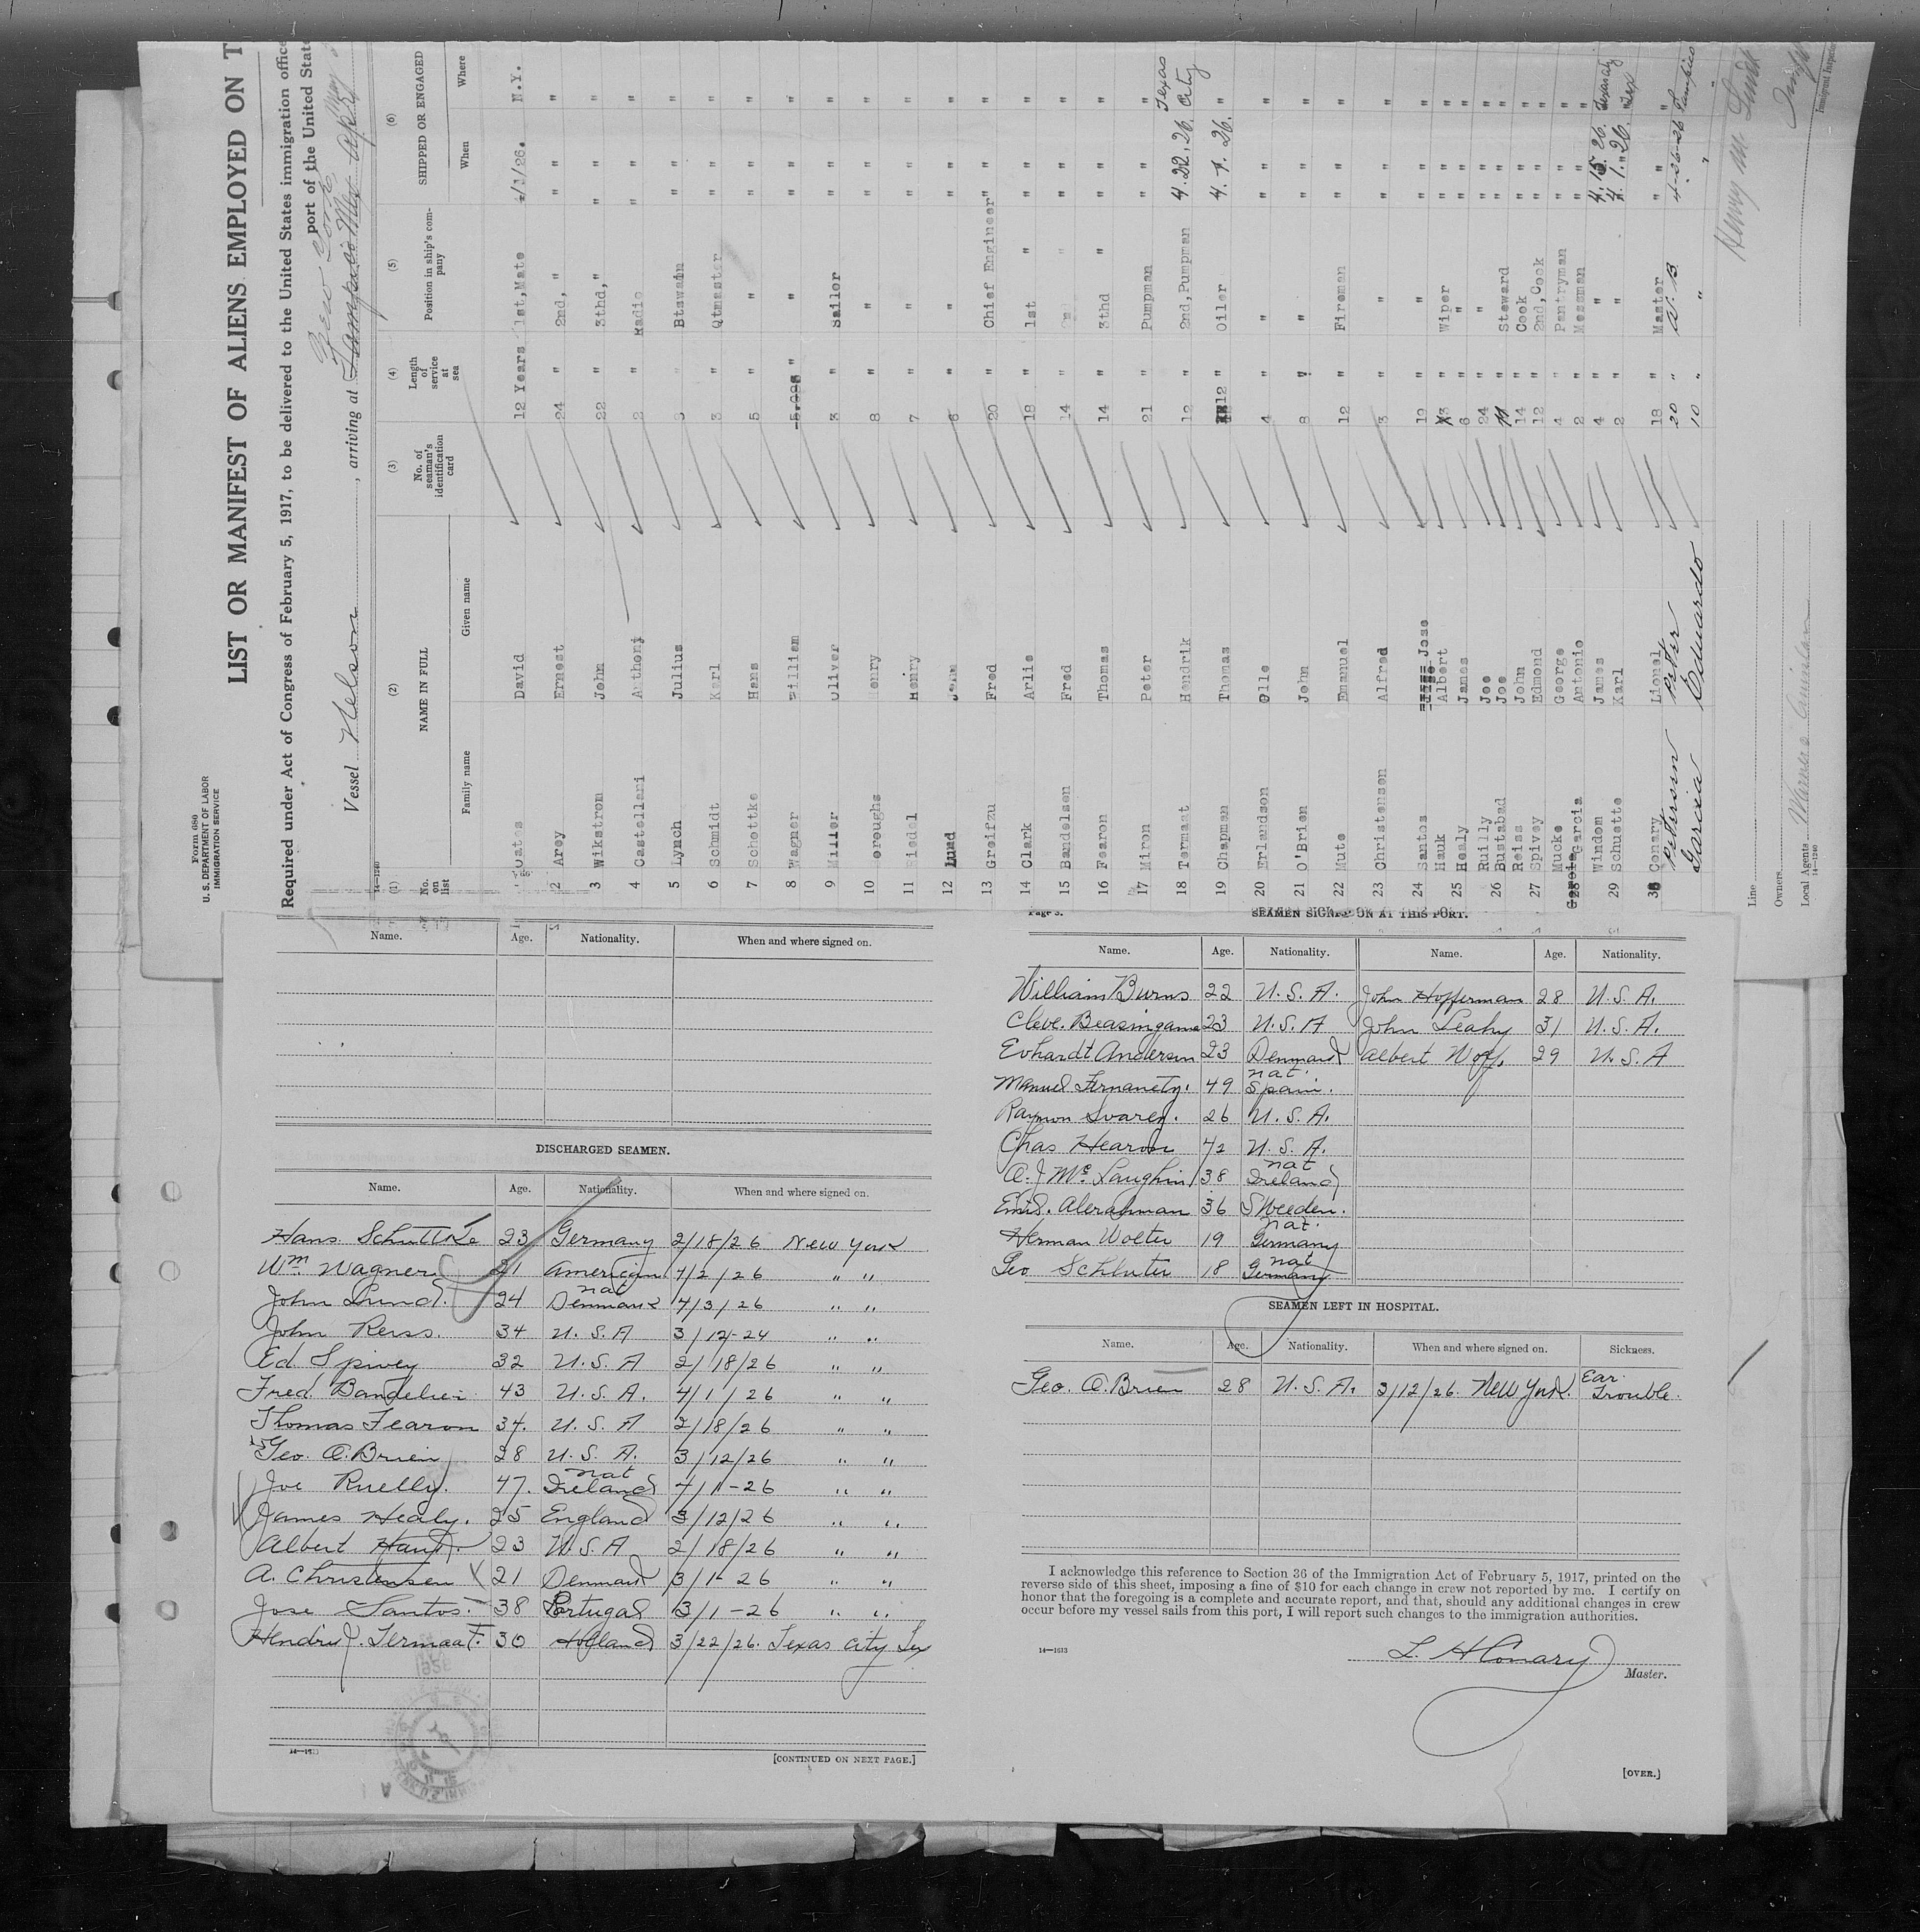 Form 680
U. S. DEPARTMENT OF LABOR
IMMIGRATION SERVICE
LIST OR MANIFEST OF ALIENS EMPLOYED ON T
Required under Act of Congress of February 5, 1917, to be delivered to the United States immigration office
port of the United State
New York
Vessel Nelson, arriving at Tampico Mex
14—1240
(1) (2) (3) (4) (5) (6)
No. on list NAME IN FULL No. of seaman's identification card Length of service at sea Position in ship's company SHIPPED OR ENGAGED
Family name Given name When Where
David 12 Years 1st, Mate 4/3/26. N.Y.
2 Arey Ernest 24 " 2nd, " " " "
3 Wikstrom John 22 " 3thd, " " " "
4 Castellani Anthony 2 " Radio " " "
5 Lynch Julius 3 " Btswain " " "
6 Schmidt Karl 3 " Qtmaster " " "
7 Schottke Hans 5 " " " " "
8 Wagner William " " " " "
9 Miller Oliver 3 " Sailor " " "
10 oroughs Henry 8 " " " " "
11 iedel Henry 7 " " " " "
12 Lund John 6 " " " " "
13 Greifzu Fred 20 " Chief Engineer " " "
14 Clark Arlie 18 " 1st " " " "
15 Bandelsen Fred 14 " " " " "
16 Fearon Thomas 14 " 3thd " " " "
17 Miron Peter 21 " Pumpman " " "
18 Termaat Hendrik 12 " 2nd, Pumpman 4.22.26. Texas City
19 Chapman Thomas 12 " Oiler 4.1.26. "
20 Erlandson Olle 4 " " " " "
21 O'Brien John 8 " " " " "
22 Mute Emanuel 12 " Fireman " " "
23 Christensen Alfred 3 " " " " "
24 Santos Jose 19 " " " " "
Hauk Albert 3 " Wiper " " "
25 Healy James 6 " " " " "
Ruilly Joe 24 " " " " "
26 Bustabad Joe 11 " Steward " " "
Reiss John 14 " Cook " " "
27 Spivey Edmond 12 " 2nd, Cook " " "
Mucke George 4 " Pantryman " " "
28 Garcia Antonio 2 " Messman " " "
Windom James 4 " " 4.15.26. Texas City
29 Schuette Karl 2 " " 4.1.26. Tex
30 Conary Lionel 18 " Master " " "
Peterson Peter 20 " A.B. 4-26-26 Tampico
Garcia Eduardo 10 " " " "
Line
Owners
Local Agents
14—1240
Immigrant Inspector
Name. Age. Nationality. When and where signed on.
DISCHARGED SEAMEN.
Name. Age. Nationality. When and where signed on.
Hans Schuttke 23 Germany 2/18/26 New York
Wm Wagner 21 American 4/2/26 " "
nat
John Lund. 24 Denmark 4/3/26 " "
John Reiss. 34 U.S.A 3/12-24 " "
Ed Spivey 32 U.S.A 2/18/26 " "
Fred. Bandelier 43 U.S.A. 4/1/26 " "
Thomas Fearon 34. U.S.A 2/18/26 " "
Geo. O.Brien 28 U.S.A. 3/12/26 " "
nat
Joe Ruelly. 47. Ireland 4/1-26 " "
James Healy. 25 England 3/12/26 " "
Albert Hauk. 23 U.S.A 2/18/26 " "
A. Christensen 21 Denmark 3/1-26 " "
Jose Santos. 38 Portugal 3/1-26 " "
Hendrik. Termaat. 30 Holland 3/22/26. Texas City Tex
14—1613
[CONTINUED ON NEXT PAGE.]
Page 3.
SEAMEN SIGNED ON AT THIS PORT.
Name. Age. Nationality. Name. Age. Nationality.
William Burns 22 U.S.A. John Hofferman 28 U.S.A.
Cleve. Beasingame 23 U.S.A John Leahy 31 U.S.A.
Evhardt Andersen 23 Denmark Albert Woff. 29 U.S.A
nat.
Manuel Fernanety. 49 Spain.
Raymon Svarez. 26 U.S.A.
Chas Hearon 42 U.S.A.
nat
A. J McLaughin 38 Ireland
Emil. Aleraman 36 Sweeden.
nat.
Herman Wolter 19 Germany
nat
Geo Schluter 18 Germany
SEAMEN LEFT IN HOSPITAL.
Name. Age. Nationality. When and where signed on. Sickness.
Geo. O.Brien 28 U.S.A. 3/12/26. New York. Ear. Trouble.
I acknowledge this reference to Section 36 of the Immigration Act of February 5, 1917, printed on the
reverse side of this sheet, imposing a fine of $10 for each change in crew not reported by me. I certify on
honor that the foregoing is a complete and accurate report, and that, should any additional changes in crew
occur before my vessel sails from this port, I will report such changes to the immigration authorities.
L. H Conary
14—1613
Master.
[OVER.]